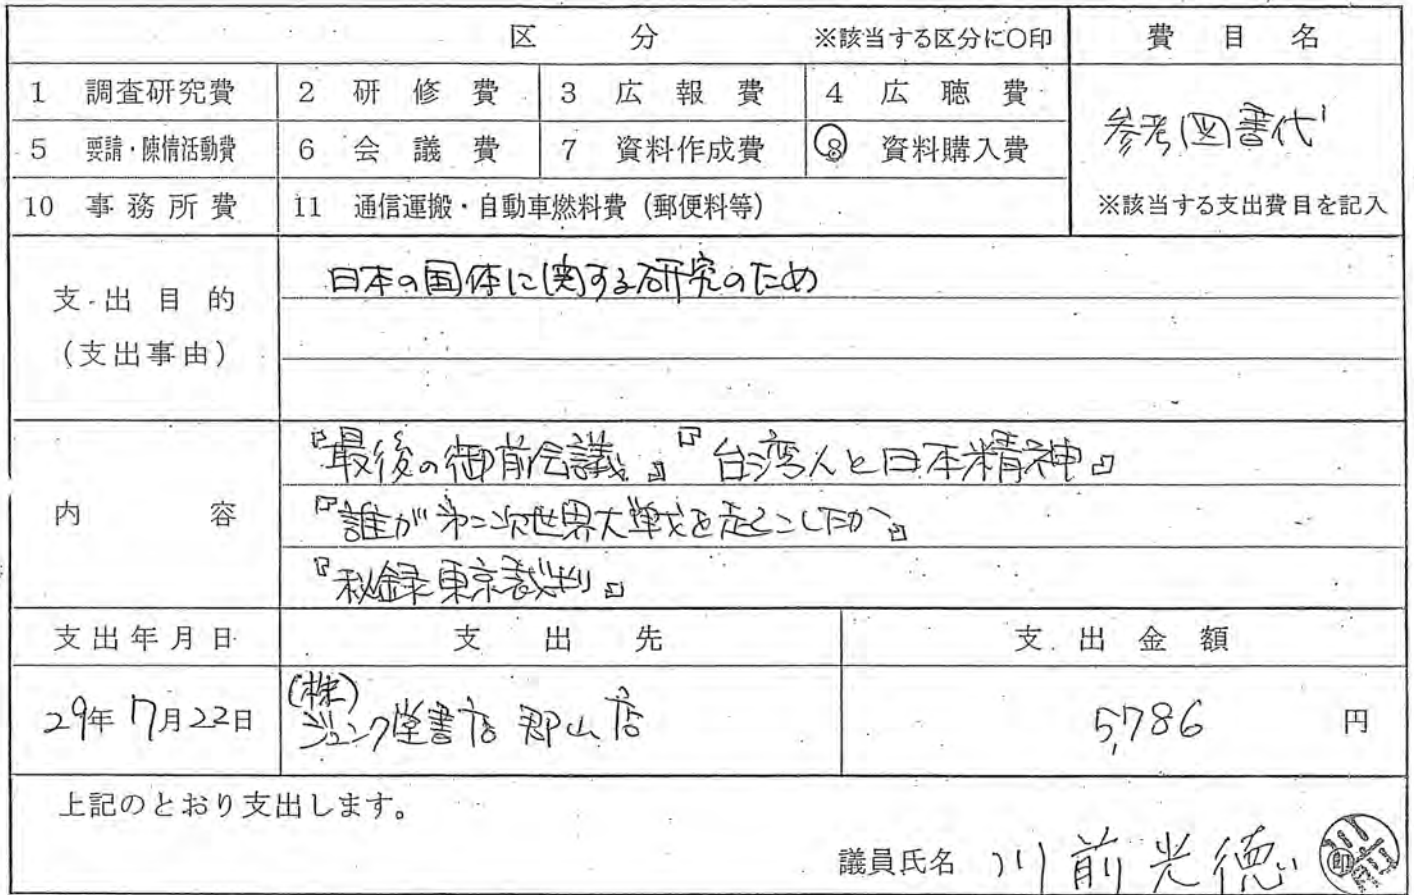 区分 ※該当する区分に○印 費目名
1 調査研究費 2 研修費 3 広報費 4 広聴費
参考図書代
5 要請・陳情活動費 6 会議費 7 資料作成費 8 資料購入費
10 事務所費 11 通信運搬・自動車燃料費（郵便料等） ※該当する支出費目を記入
支出目的
（支出事由）
日本の国体に関する研究のため
内容
『最後の御前会議』『台湾人と日本精神』
『誰が第二次世界大戦を起こしたか』
『秘録東京裁判』
支出年月日 支出先 支出金額
29年7月22日 (株)ジュンク堂書店 郡山店 5,786円
上記のとおり支出します。
議員氏名 川前光徳 印